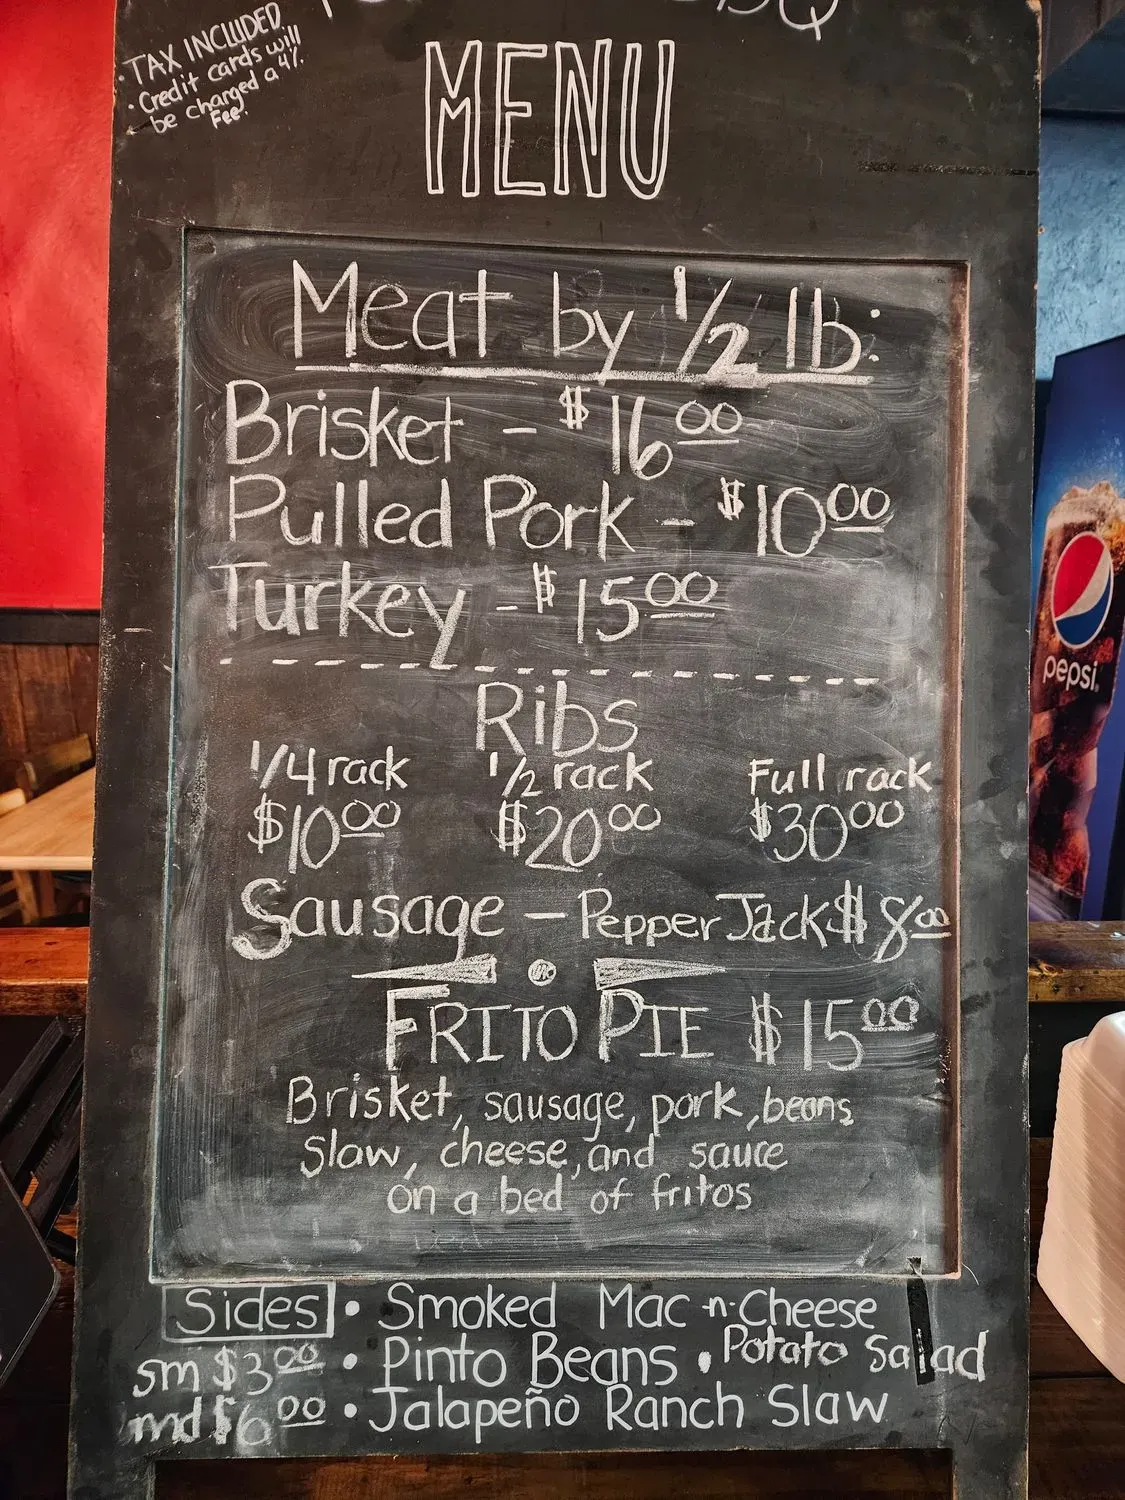 BBQ
• TAX INCLUDED
• Credit cards will
be charged a 4%
Fee.
MENU
Meat by 1/2 lb:
Brisket - $16.00
Pulled Pork - $10.00
Turkey - $15.00
Ribs
1/4 rack 1/2 rack Full rack
$10.00 $20.00 $30.00
Sausage - Pepper Jack $8.00
FRITO PIE $15.00
Brisket, sausage, pork, beans
Slaw, cheese, and sauce
on a bed of fritos
Sides • Smoked Mac -n- Cheese
sm $3.00 • Pinto Beans • Potato Salad
md $6.00 • Jalapeño Ranch Slaw
pepsi